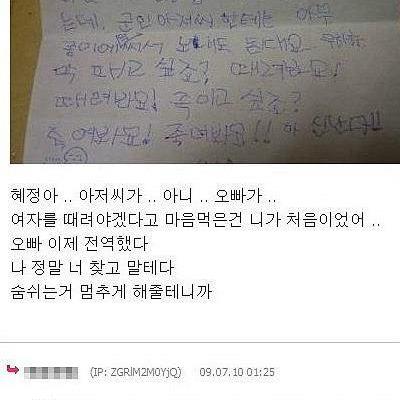 는데, 군인 아저씨 한테는 아무
종이에 써서 보내도 된대요
막 패고 싶죠? 때려봐요!
때려봐요! 죽이고 싶죠?
죽여봐요! 죽여봐요!! 아 신난다!!
혜정아 .. 아저씨가 .. 아니 .. 오빠가 ..
여자를 때려야겠다고 마음먹은건 니가 처음이었어 ..
오빠 이제 전역했다
나 정말 너 찾고 말테다
숨쉬는거 멈추게 해줄테니까
(IP: ZGRlM2M0YjQ) 09.07.10 01:25